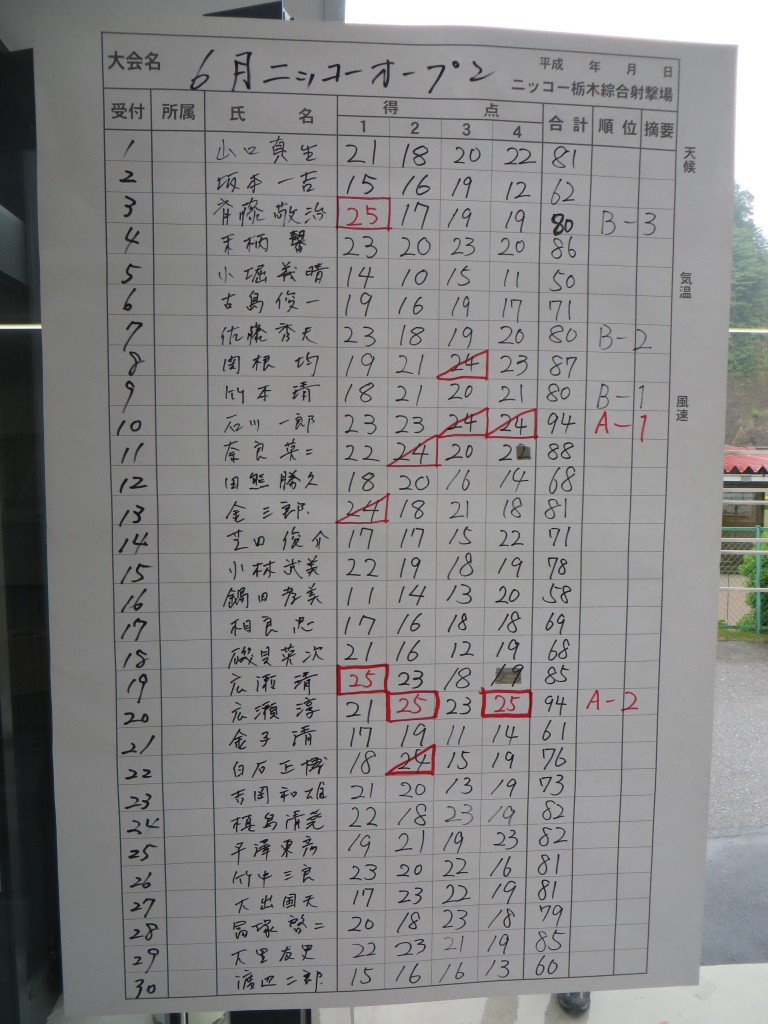 大会名 6月ニッコーオープン 平成 年 月 日
ニッコー栃木綜合射撃場
受付 所属 氏 名 得 点 合計 順位 摘要
1 2 3 4
1 山口真生 21 18 20 22 81
2 坂本一吉 15 16 19 12 62
3 斉藤敬治 25 17 19 19 80 B-3
4 末柄馨 23 20 23 20 86
5 小堀義晴 14 10 15 11 50
6 古島俊一 19 16 19 17 71
7 佐藤秀夫 23 18 19 20 80 B-2
8 関根均 19 21 24 23 87
9 竹本靖 18 21 20 21 80 B-1
10 石川一郎 23 23 24 24 94 A-1
11 奈良英二 22 24 20 22 88
12 田熊勝久 18 20 16 14 68
13 金三郎 24 18 21 18 81
14 芝田俊介 17 17 15 22 71
15 小林武美 22 19 18 19 78
16 鍋田孝美 11 14 13 20 58
17 相良忠 17 16 18 18 69
18 磯見英次 21 16 12 19 68
19 広瀬清 25 23 18 19 85
20 広瀬淳 21 25 23 25 94 A-2
21 金子清 17 19 11 14 61
22 白石正博 18 24 15 19 76
23 吉岡和雄 21 20 13 19 73
24 槙島清尭 22 18 23 19 82
25 平澤東彦 19 21 19 23 82
26 竹中三良 23 20 22 16 81
27 大出国夫 17 23 22 19 81
28 冨塚啓二 20 18 23 18 79
29 大里友史 22 23 21 19 85
30 渡辺二郎 15 16 16 13 60
天候
気温
風速